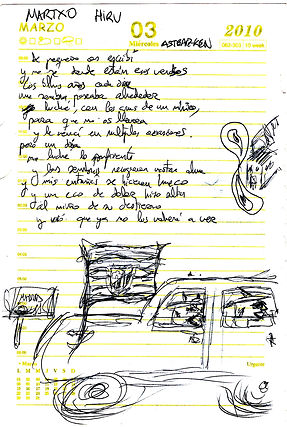 MARTXO HIRU
MARZO 03 2010
Miercoles ASTEAZKEN 062-303 10 week
De pequeño os escribí
y no se donde están esos versos
Los últimos años cada día
una sombra paseaba alrededor
yo luché con los ojos de un niño,
para que no os llevara
y le vencí en multiples ocasiones,
pero un día
no luché lo suficiente
y las sombras recogieron vuestra alma
y mis entrañas se hicieron hueco
y un eco de dolor hizo altos
el muro de su destierro
y sé que ya no los volveré a ver
L M M J V S D
Urgente